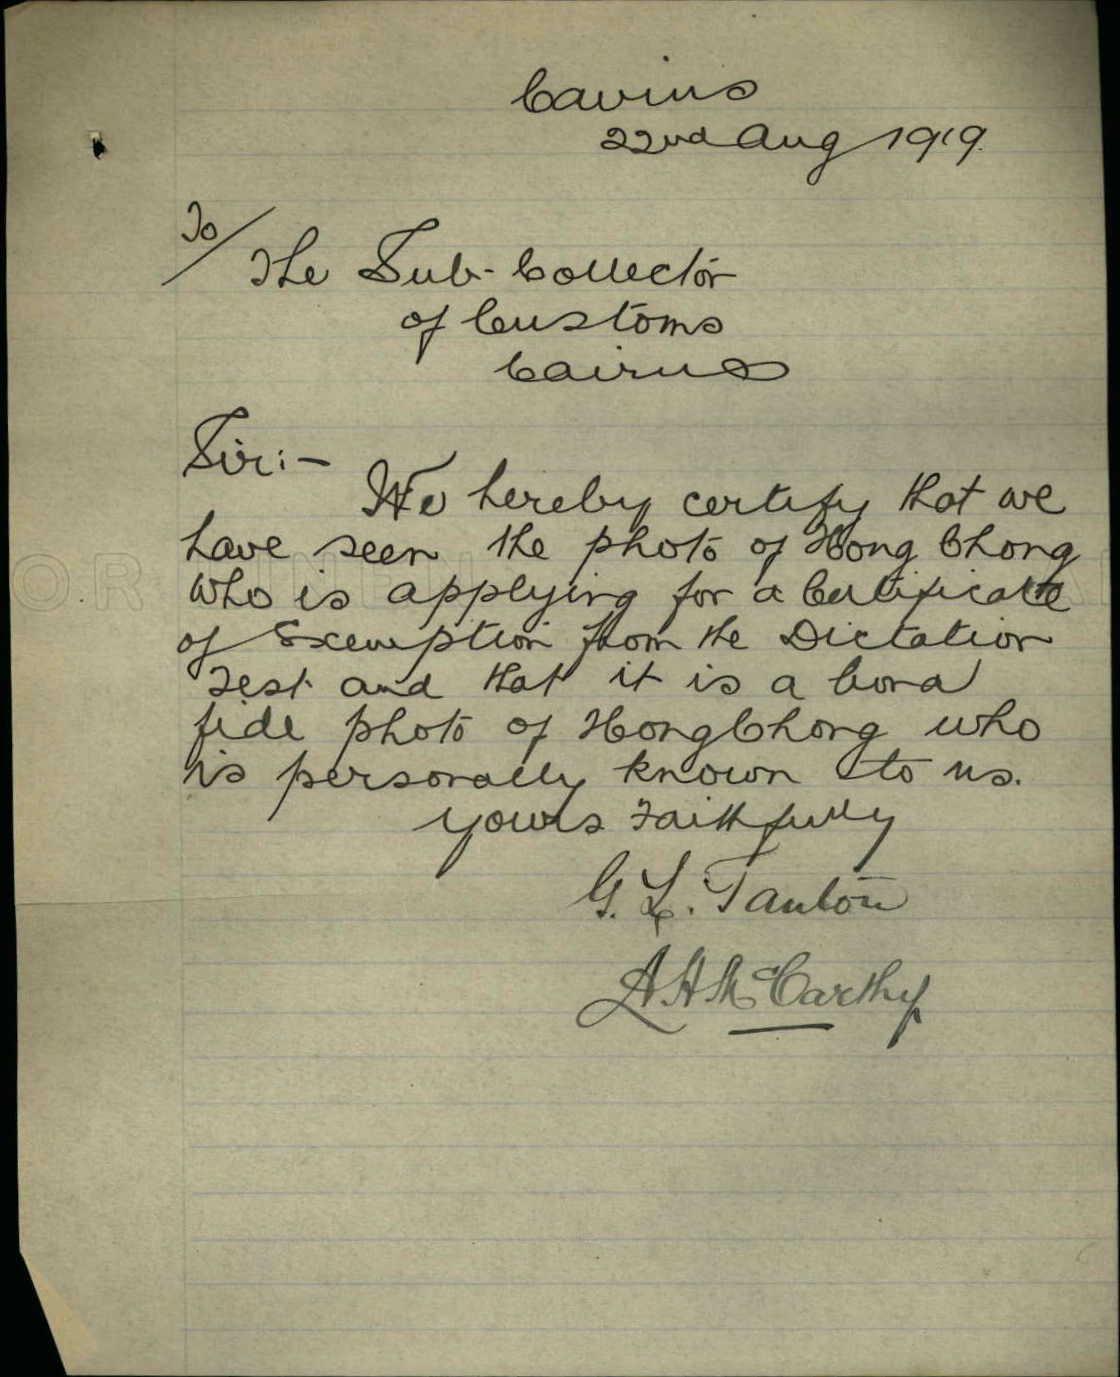 Cairns
22nd Aug 1919.
To/
The Sub-Collector
of Customs
Cairns
Sir:-
We hereby certify that we
have seen the photo of Hong Chong
who is applying for a Certificate
of Exemption from the Dictation
Test and that it is a bona
fide photo of Hong Chong who
is personally known to us.
Yours Faithfully
G. L. Tanton
A. A. McCarthy